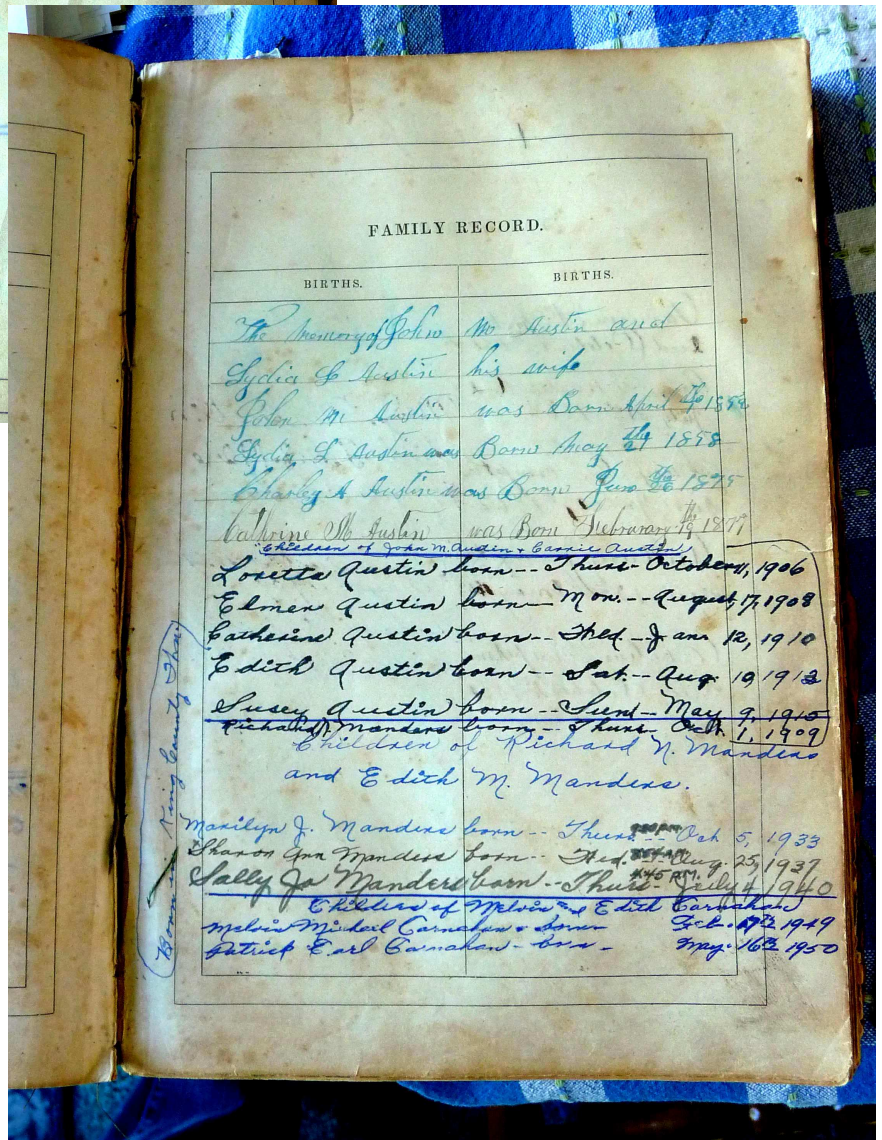 FAMILY RECORD.
BIRTHS. BIRTHS.
The memory of John M Austin and
Lydia L Austin his wife
John M Austin was Born April
Lydia L Austin was Born May 1858
Charley A Austin was Born June
Cathrine M Austin was Born Febrarary 1879
Children of John M. Austin & Carrie Austin
Loretta Austin born -- Thurs - October 11, 1906
Elmer Austin born -- Mon. -- August, 17, 1908
Catherine Austin born -- Wed - Jan 12, 1910
Edith Austin born -- Sat. - Aug 10 1912
Susey Austin born -- Sun - May 9, 1915
Richard N. Manders born -- Thurs - Oct. 1, 1909
Children of Richard N. Manders
and Edith M. Manders.
Marilyn J. Manders born -- Thurs Oct 5, 1933
Sharon Ann Manders born -- Wed. Aug. 25, 1937
Sally Jo Manders born -- Thurs 4:45 P.M. July 4, 1940
Children of Melvin and Edith Carnahan
Melvin Micheil Carnahan - born - 1949
Patrick Earl Carnahan - born - May. 16th 1950
Born in King County